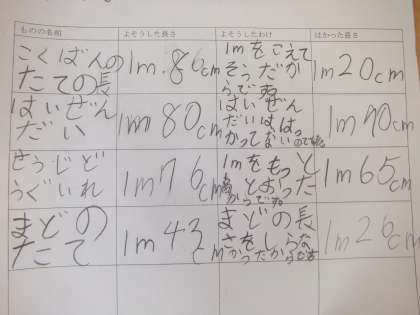 ものの名前
よそうした長さ
よそうしたわけ
はかった長さ
こくばんの
たての長
1m.86cm
1mをこえて
そうだか
らです
1m20cm
はいぜん
だい
1m80cm
はいぜん
だいは
かってない
1m90cm
そうじど
うぐいれ
1m76cm
1mをもっと
とおった
からです
1m65cm
まどの
たて
1m43cm
まどの長
さをしらな
かったから
1m26cm